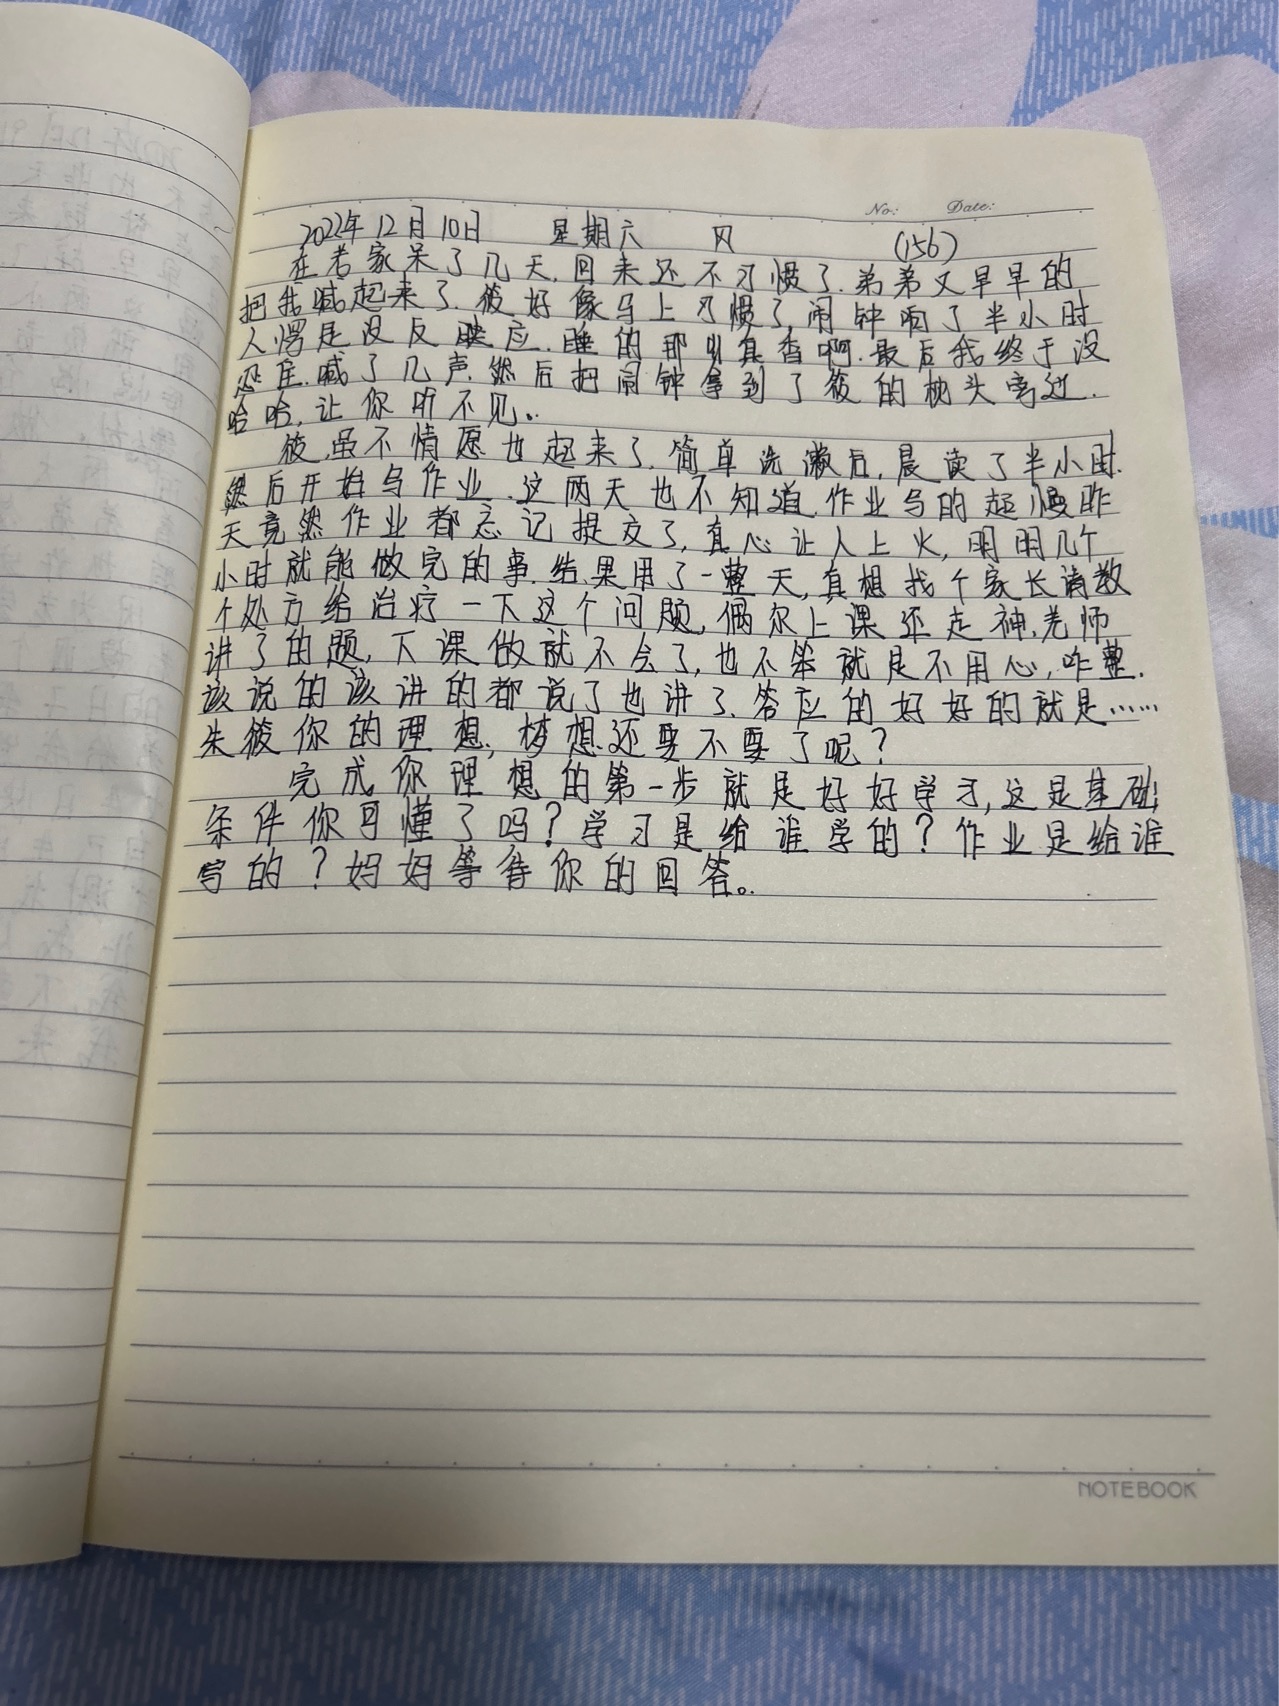 No: Date:
2022年12月10日 星期六 风 (156)
在老家呆了几天,回来还不习惯了.弟弟又早早的
把我喊起来了.筱好像马上习惯了,闹钟响了半小时
人愣是没反映应.睡的那叫真香啊.最后我终于没
忍住.喊了几声.然后把闹钟拿到了筱的枕头旁边.
哈哈,让你听不见。
筱,虽不情愿也起来了.简单洗漱后,晨读了半小时.
然后开始写作业.这两天也不知道,作业写的超慢昨
天竟然作业都忘记提交了,真心让人上火,明明几个
小时就能做完的事.结果用了一整天,真想找个家长请教
个处方给治疗一下这个问题,偶尔上课还走神.老师
讲了的题,下课做就不会了,也不笨就是不用心,咋整.
该说的该讲的都说了也讲了.答应的好好的就是……
朱筱你的理想,梦想还要不要了呢?
完成你理想的第一步就是好好学习,这是基础
条件你可懂了吗?学习是给谁学的?作业是给谁
写的?妈妈等待你的回答。
NOTEBOOK